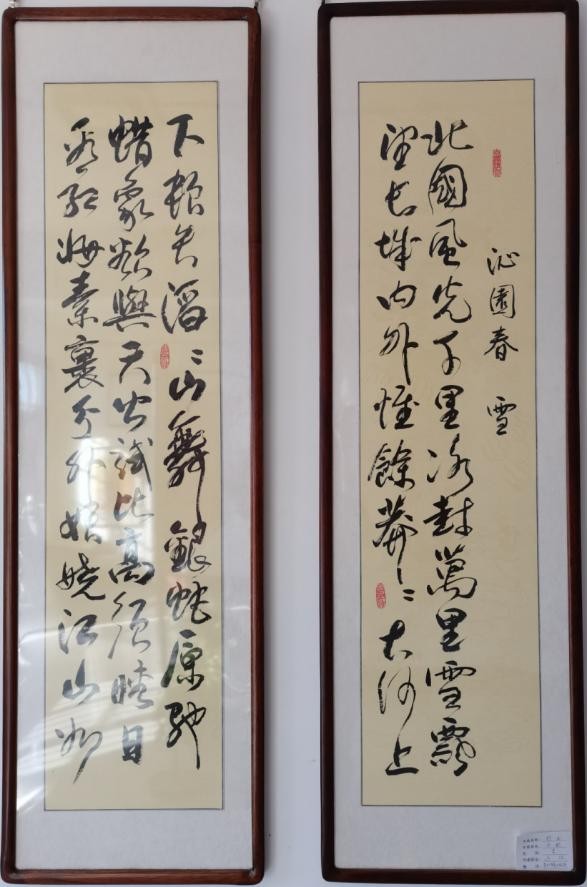 沁園春 雪
北國風光千里冰封萬里雪飄
望長城内外惟餘莽々大河上
下頓失滔々山舞銀蛇原馳
蜡象欲與天公試比高須晴日
看紅妝素裹分外妖嬈江山如